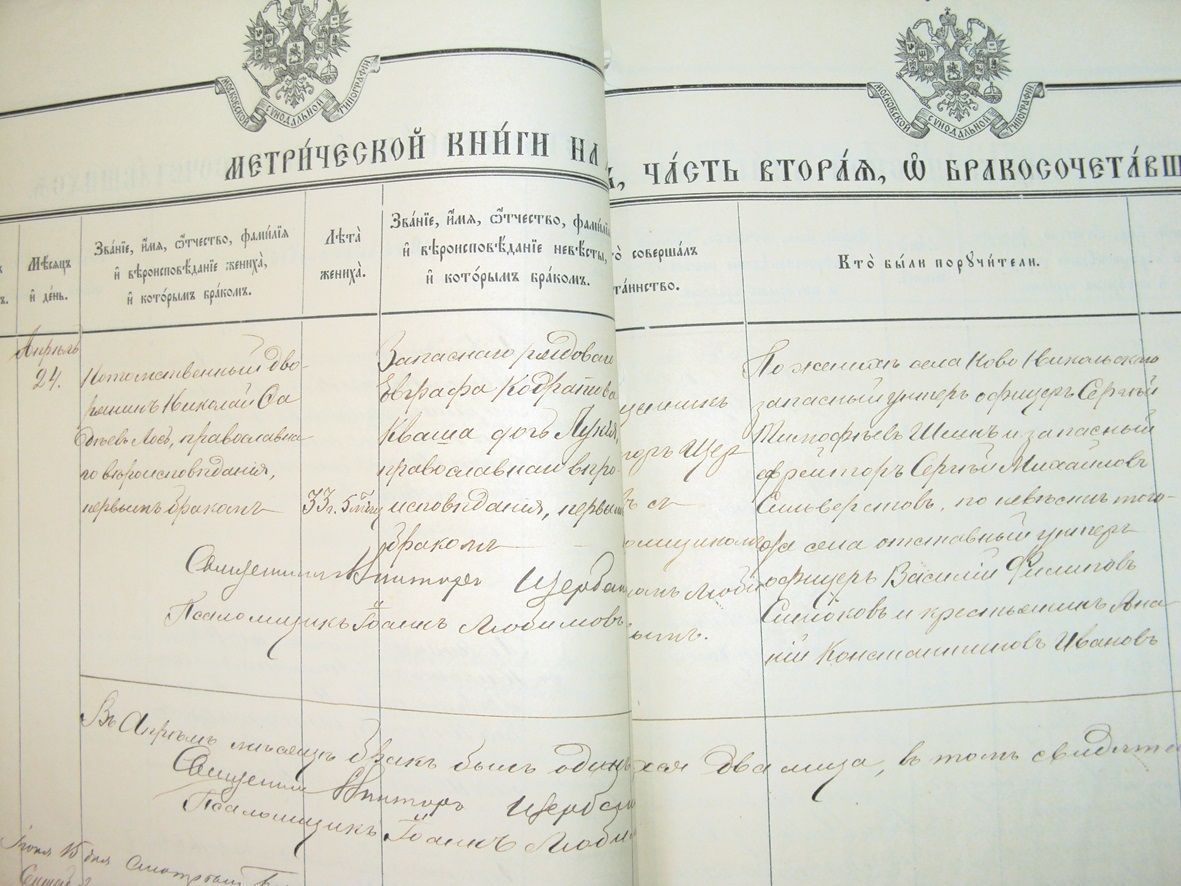 МОСКОВСКОЙ СУНОДАЛЬНОЙ ТИПОГРАФІИ
МОСКОВСКОЙ СУНОДАЛЬНОЙ ТИПОГРАФІИ
МЕТРИ́ЧЕСКОЙ КНИ́ГИ НА
, ЧА́СТЬ ВТОРА́Я, Ѽ БРАКОСОЧЕТА́ВШ
Мѣсяцъ
и҆ де́нь.
Зва́нїе, и҆́мя, ѻ҆́тчество, фами́лїя
и҆ вѣроисповѣ́данїе жениха̀,
и҆ кото́рымъ бра́комъ.
Лѣ́та
жениха̀.
Зва́нїе, и҆́мя, ѻ҆́тчество, фами́лїя
и҆ вѣроисповѣ́данїе невѣ́сты,
и҆ кото́рымъ бра́комъ.
соверша́лъ
та́инство.
Кто̀ бы́ли поручи́тели.
Апрѣль
24.
Потомственный дво-
рянинъ Николай
Лось, православна
го вѣроисповѣданія,
первымъ бракомъ
33 г.
Запаснаго рядоваго
Евграфа Кодратова
Кваша дочь Лукія,
православнаго вѣро-
исповѣданія, первымъ
бракомъ
По женихѣ села Ново Никольскаго
запасный унтеръ офицеръ Сергѣй
Тимофѣевъ Шеинъ и запасный
ефрейторъ Сергѣй Михайловъ
Сильверстовъ, по невѣстѣ того-
же села отставный унтеръ
офицеръ Василій Филиповъ
и крестьянинъ Ана-
ній Константиновъ Ивановъ
Священникъ Викторъ Щербак
Псаломщикъ Іоаннъ Любимовъ
Въ Апрѣлѣ мѣсяцѣ бракъ былъ одинъ
два лица, въ томъ
Священникъ Викторъ Щерба
Псаломщикъ Іоаннъ Люби